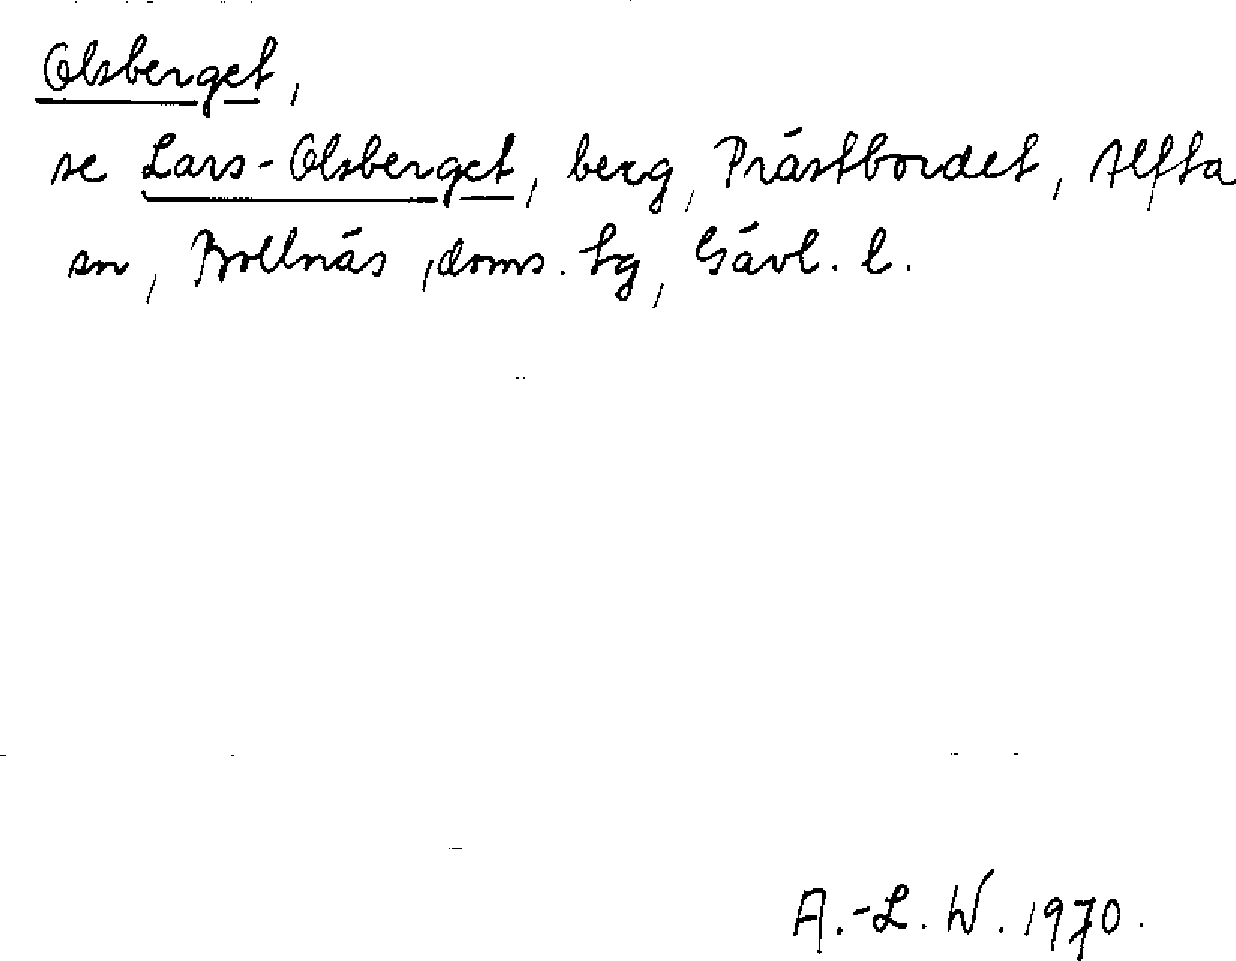 Olsberget,
se Lars-Olsberget, berg, Prästbordet, Alfta
sn, Bollnäs, doms. tg, Gävl. l.
A.-L. W. 1970.